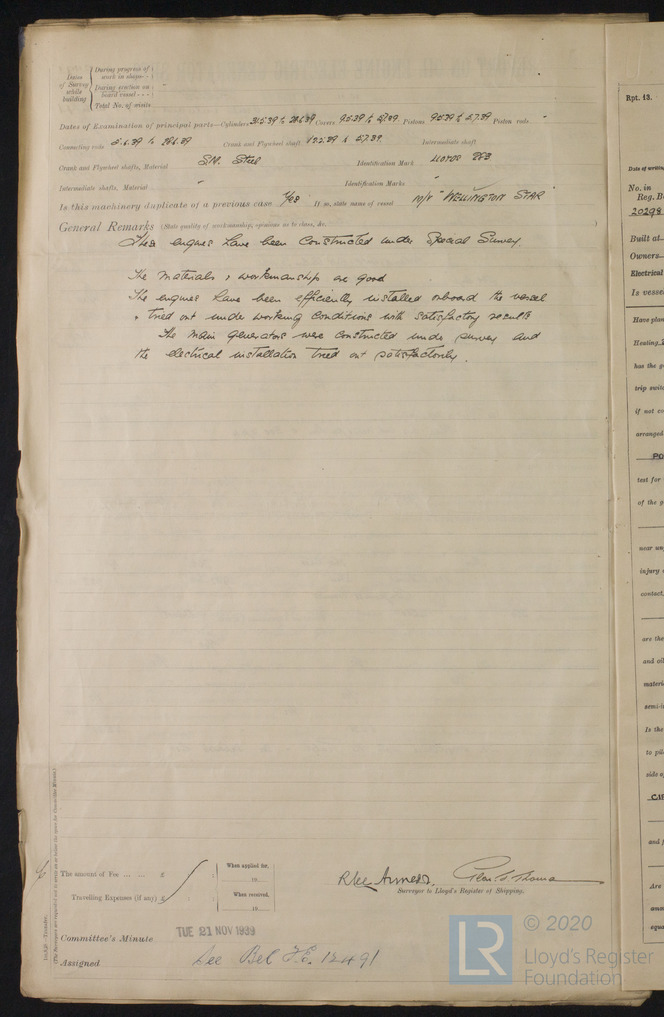 Dates of Survey while building
During progress of work in shops - -
During erection on board vessel - - -
Total No. of visits
Dates of Examination of principal parts—Cylinders 31.5.39 to 28.6.39 Covers 9.5.39 to Pistons 9.5.39 to 5.7.39 Piston rods "
Connecting rods 5.6.39 to 28.6.39 Crank and Flywheel shaft 13.2.39 to 5.7.39 Intermediate shaft
Crank and Flywheel shafts, Material S.M. Steel Identification Mark LLOYDS
Intermediate shafts, Material " Identification Marks "
Is this machinery duplicate of a previous case Yes If so, state name of vessel M/V "WELLINGTON STAR"
General Remarks (State quality of workmanship, opinions as to class, &c.
These engines have been constructed under Special Survey.
The materials & workmanship are good
The engines have been efficiently installed onboard the vessel
& tried out under working conditions with satisfactory results
The main generators were constructed under survey and
the electrical installation tried out satisfactorily.
The amount of Fee ... ... £ : : When applied for,
19
Travelling Expenses (if any) £ : : When received,
19
Surveyor to Lloyd's Register of Shipping.
Committee's Minute TUE 21 NOV 1939
Assigned See Bel F.E. 12491
Rpt. 13.
Date of writing
No. in
Reg. B
20298
Built at
Owners
Electrical
Is vesse
Have plan
Heating
has the g
trip switc
if not co
arranged
PO
test for
of the p
near un
injury
contact,
are the
and oil
materi
semi-i
Is the
to pil
side
and f
Are
LR
© 2020
Lloyd's Register
Foundation